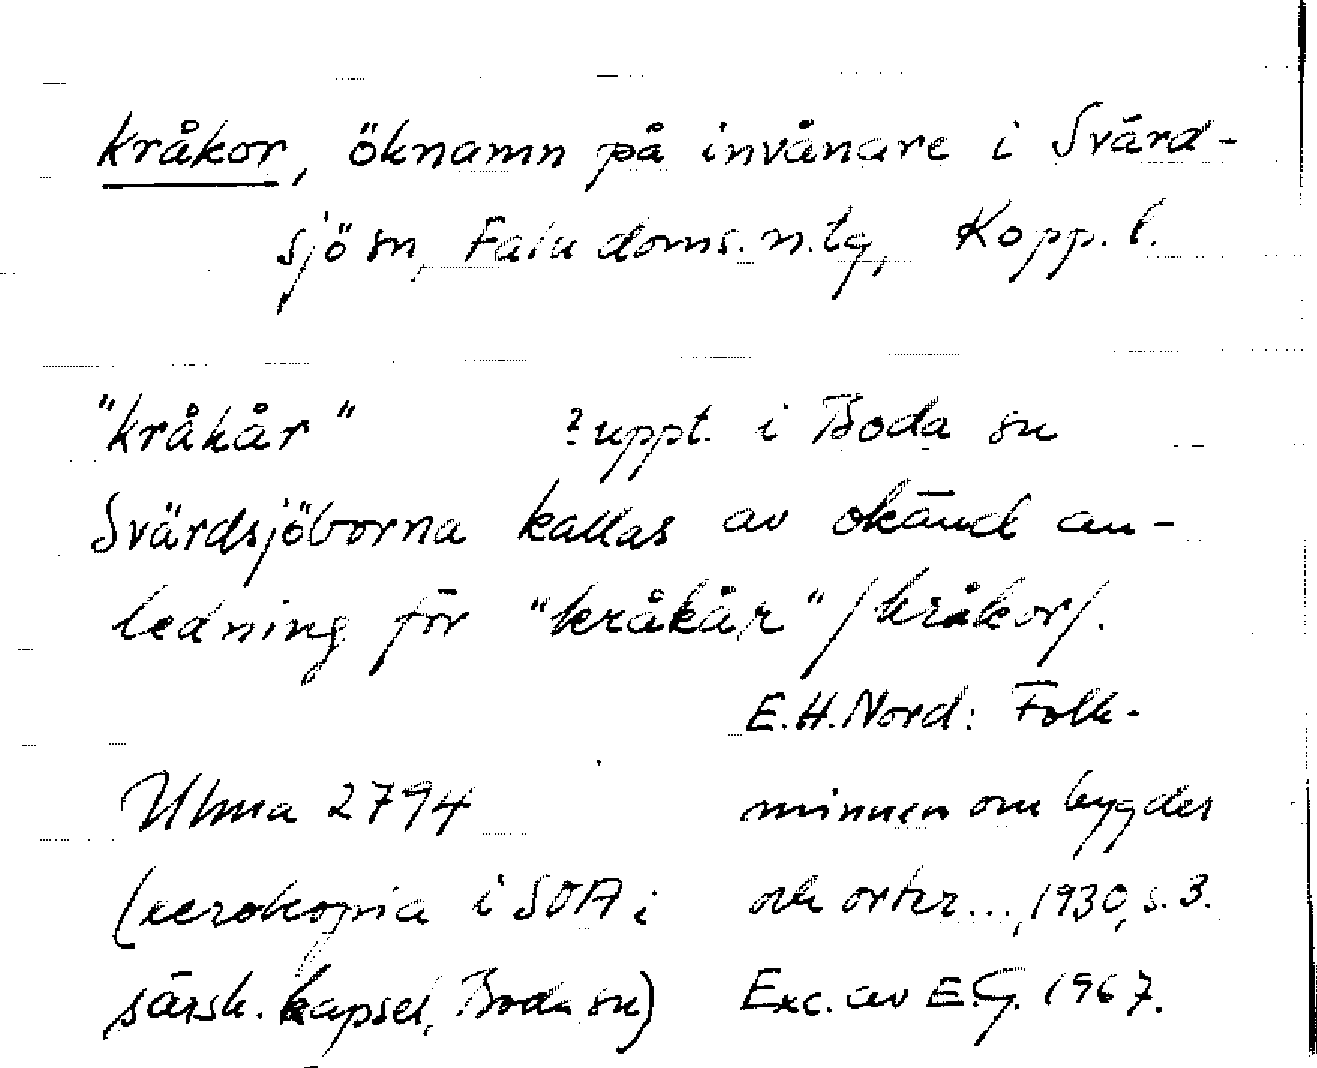 kråkor, öknamn på invånare i Svärd-
sjö sn, Falu doms. n. tg, Kopp. l.
"kråkår" ? uppt. i Boda sn
Svärdsjöborna kallas av okänd an-
ledning för "kråkår" /kråkor/.
E.H. Nord: Folk-
Ulma 2794 minnen om bygder
(xerokopia i SOA i och orter..., 1930, s. 3.
särsk. kapsel, Boda sn) Exc. av E.G. 1967.